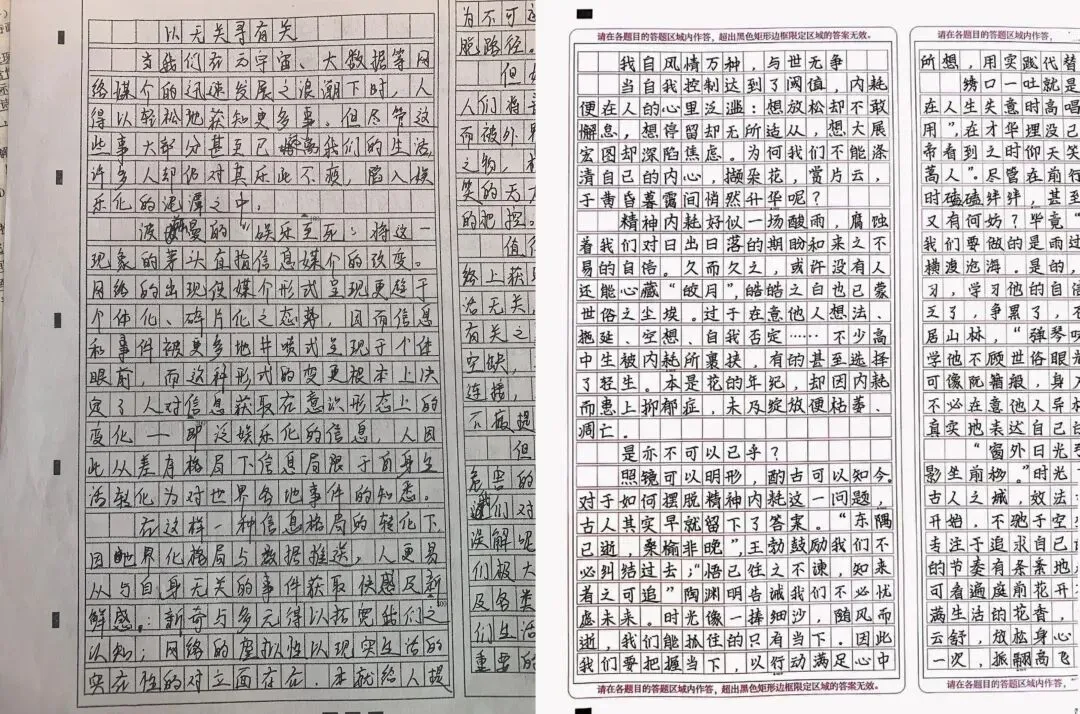 以无关寻有关
当我们在为宇宙、大数据等网
络媒介的迅速发展之浪潮下时，人
得以轻松地获知更多事。但尽管这
些事大部分甚至已我们的生活，
许多人却仍对其乐此不疲，陷入娱
乐化的泥潭之中。
波曼的"娱乐至死：将这一
现象的矛头直指信息媒介的改变。
网络的出现使媒介形式呈现更趋于
个体化、碎片化之态势，因而信息
和事件被更多地井喷式呈现于个体
眼前，而这种形式的变更根本上决
定了人对信息获取在意识形态上的
变化——即泛娱乐化的信息，人因
此从差序格局下信息局限于自身生
活转化为对世界各地事件的知悉。
在这样一种信息格局的转化下，
因地界化格局与数据推送，人更易
从与自身无关的事件获取快感及新
鲜感。：新奇与多元得以拓宽我们之
认知；网络的虚拟性以现实生活的
实在性的对立面存在，本就给人提
为不可
脱路径。
但
人们将
而被外界
之物，
笑的无
的把控。
值得
络上获
活无关，
有关之
空缺，
连接，
不痛提
但
危害的
我们对
误解呢
们极大
及各类
们生活
重要的
请在各题目的答题区域内作答，超出黑色矩形边框限定区域的答案无效。
我自风情万种，与世无争
当自我控制达到了阈值，内耗
便在人的心里泛滥：想放松却不敢
懈怠，想停留却无所适从，想大展
宏图却深陷焦虑。为何我们不能涤
清自己的内心，撷朵花，赏片云，
于黄昏暮霭间悄然升华呢？
精神内耗好似一场酸雨，腐蚀
着我们对日出日落的期盼和来之不
易的自信。久而久之，或许没有人
还能心藏"皎月"，皓皓之白也已蒙
世俗之尘埃。过于在意他人想法、
拖延、空想、自我否定……不少高
中生被内耗所裹挟，有的甚至选择
了轻生。本是花的年纪，却因内耗
而患上抑郁症，未及绽放便枯萎、
凋亡。
是亦不可以已乎？
照镜可以明形，酌古可以知今。
对于如何摆脱精神内耗这一问题，
古人其实早就留下了答案。"东隅
已逝，桑榆非晚"，王勃鼓励我们不
必纠结过去；"悟已往之不谏，知来
者之可追"陶渊明告诫我们不必忧
虑未来。时光像一捧细沙，随风而
逝，我们能抓住的只有当下。因此
我们要把握当下，以行动满足心中
请在各题目的答题区域内作答，超出黑色矩形边框限定区域的答案无效。
请在各题目的答题区域内
所想，用实践代替
绣口一吐就是
在人生失意时高唱
用"，在才华埋没已
帝看到之时仰天笑
蒿人"。尽管在前行
时磕磕绊绊，甚至
又有何妨？毕竟"
我们要做的是雨过
横渡沧海。是的，
习，学习他的自信
王了，争累了，
居山林，"弹琴
学他不顾世俗眼光
可像阮籍般，身入
不必在意他人异样
真实地表达自己
"窗外日光
影坐前移。"时光
古人之城，效法
开始，不驰于空
专注于追求自己
的节奏有条素地
可看遍庭前花开
满生活的花香，
云舒，放松身心
一次，振翮高飞
请在各题目的答题区域内作